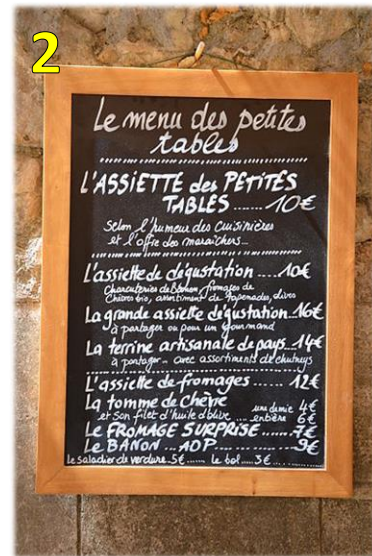 2
Le menu des petites
tables
L'ASSIETTE des PETITES
TABLES ...... 10€
Selon l'humeur des cuisinières
et l'offre des maraîchers...
L'assiette de dégustation .... 10€
Charcuteries de Banon, fromages de
Chèvre bio, assortiment de tapenades, olives
La grande assiette dégustation. 16€
à partager ou pour un gourmand
La terrine artisanale de pays. 14€
à partager... avec assortiments de chutneys
L'assiette de fromages ...... 12€
La tomme de chèvre une demie 4€
et son filet d'huile d'olive ... entière 6€
Le FROMAGE SURPRISE ...... 7€
Le BANON ... AOP ...... 9€
Le saladier de verdure. 5€ ...... Le bol .... 3€